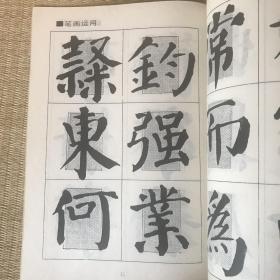 ■笔画运用
鈞
東强
何業
常
而
為